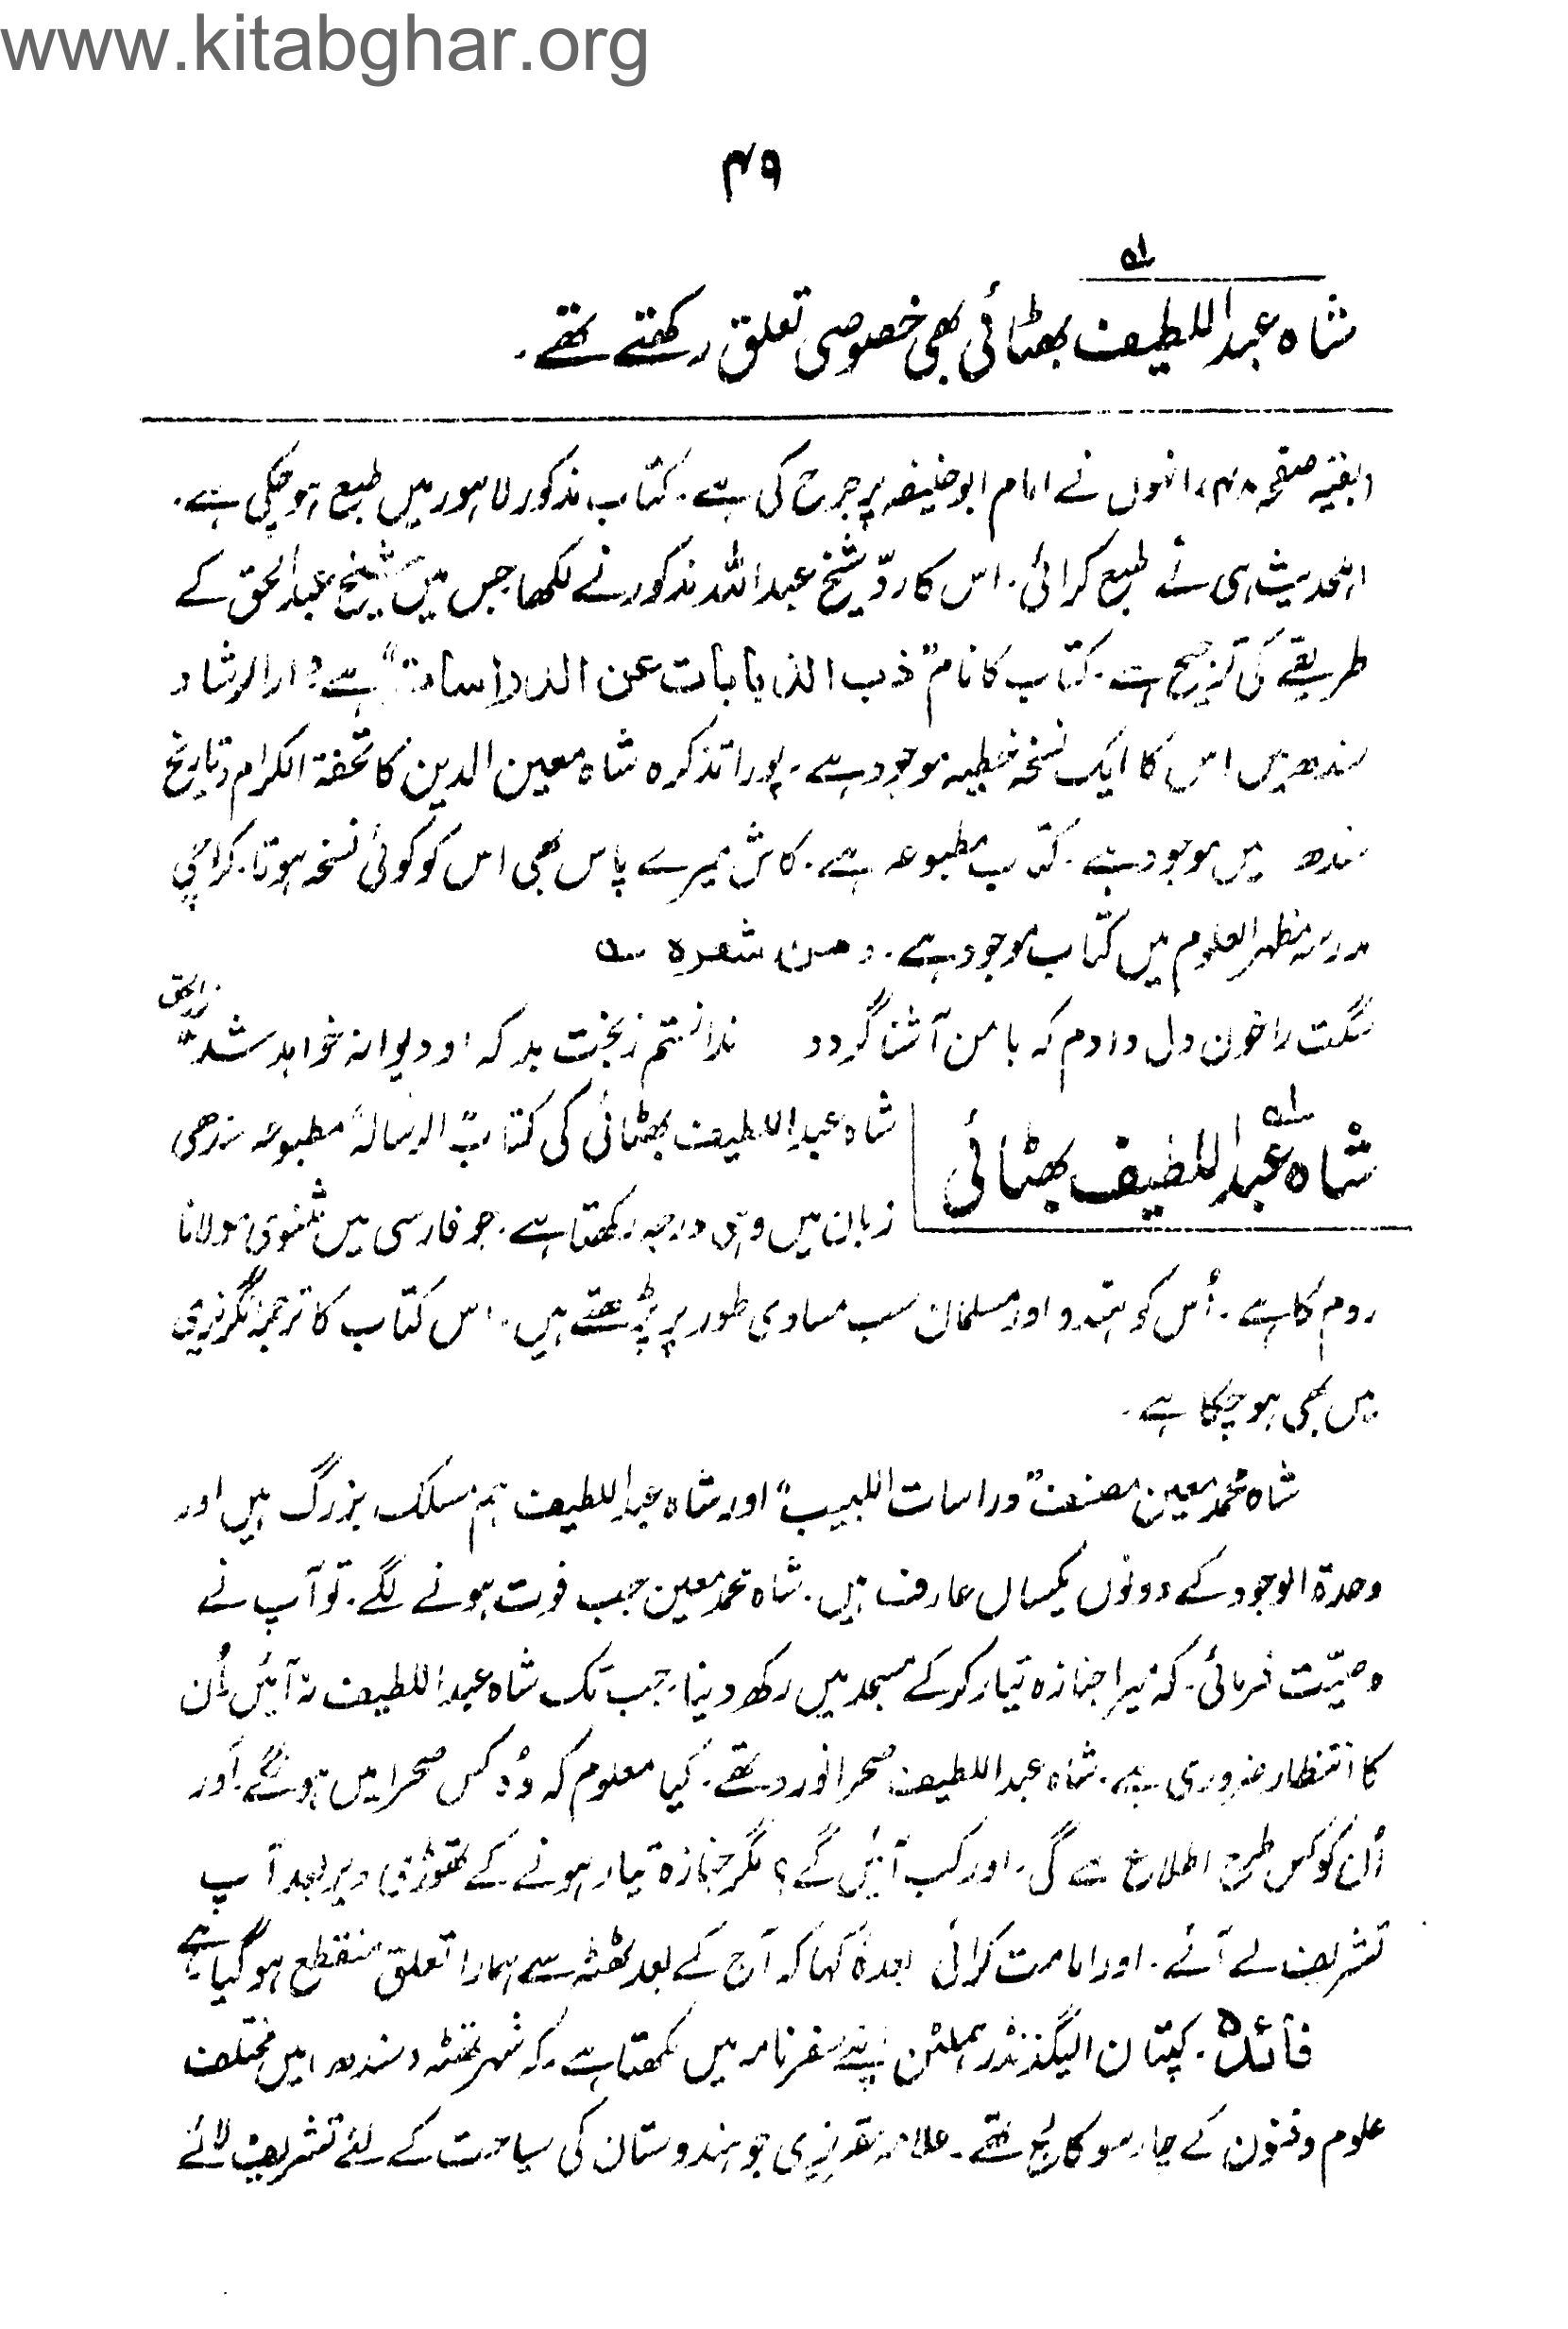 www.kitabghar.org
۴۹
شاہ عبداللطیف بھٹائی بھی خصوصی تعلق رکھتے تھے۔ لہ
(بقیہ صفحہ ۴۸) انہوں نے امام ابوحنیفہ پر جرح کی ہے۔ کتاب مذکور لاہور میں طبع ہو چکی ہے۔
اہلحدیث ہی نے طبع کرائی۔ اس کا ردّ شیخ عبداللہ مذکور نے لکھا جس میں شیخ عبدالحق کے
طریقے کی توضیح ہے۔ کتاب کا نام "ذب الذبابات عن الدراسات" ہے۔ دارالرشاد
سندھ میں اس کا ایک نسخہ خطیہ موجود ہے۔ پورا تذکرہ شاہ معین الدین کا تحفۃ الکرام (تاریخ
سندھ میں موجود ہے۔ کتاب مطبوعہ ہے۔ کاش میرے پاس بھی اس کو کوئی نسخہ ہوتا۔ کراچی
مدرسہ مظہر العلوم میں کتاب موجود ہے۔ ومن شعرہ ؎
سگت را خون دل دادم کہ با من آشنا گردد ندانستم ز بخت بد کہ او دیوانہ خواہد شد"
شاہ عبداللطیف بھٹائی لہ
شاہ عبداللطیف بھٹائی کی کتاب "الرسالہ" مطبوعہ سندھی
زبان میں وہی درجہ رکھتا ہے۔ جو فارسی میں مثنوی مولانا
روم کا ہے۔ اُس کو ہندو اور مسلمان سب مساوی طور پر پڑھتے ہیں۔ اس کتاب کا ترجمہ انگریزی
میں بھی ہو چکا ہے۔
شاہ محمد معین مصنف "دراسات اللبیب" اور شاہ عبداللطیف ہم مسلک بزرگ ہیں اور
وحدۃ الوجود کے دونوں یکساں عارف ہیں۔ شاہ محمد معین جب فوت ہونے لگے۔ تو آپ نے
وصیّت فرمائی۔ کہ میرا جنازہ تیار کر کے مسجد میں رکھ دینا۔ جب تک شاہ عبداللطیف نہ آئیں اُن
کا انتظار ضروری ہے۔ شاہ عبداللطیف صحرا نورد تھے۔ کیا معلوم کہ وُہ کس صحرا میں ہونگے۔ اور
اُن کو کس طرح اطلاع ملے گی۔ اور کب آئیں گے؟ مگر جنازہ تیار ہونے کے تھوڑی دیر بعد آپ
تشریف لے آئے۔ اور امامت کرائی بعدہٗ کہا کہ آج کے بعد ٹھٹہ سے ہمارا تعلق منقطع ہو گیا ہے
فائدہ۔ کپتان الیگزنڈر ہملٹن اپنے سفرنامہ میں لکھتا ہے۔ کہ شہر ٹھٹہ (سندھ) میں مختلف
علوم و فنون کے چار سو کالج تھے۔ علامہ مقریزی جو ہندوستان کی سیاحت کے لئے تشریف لائے